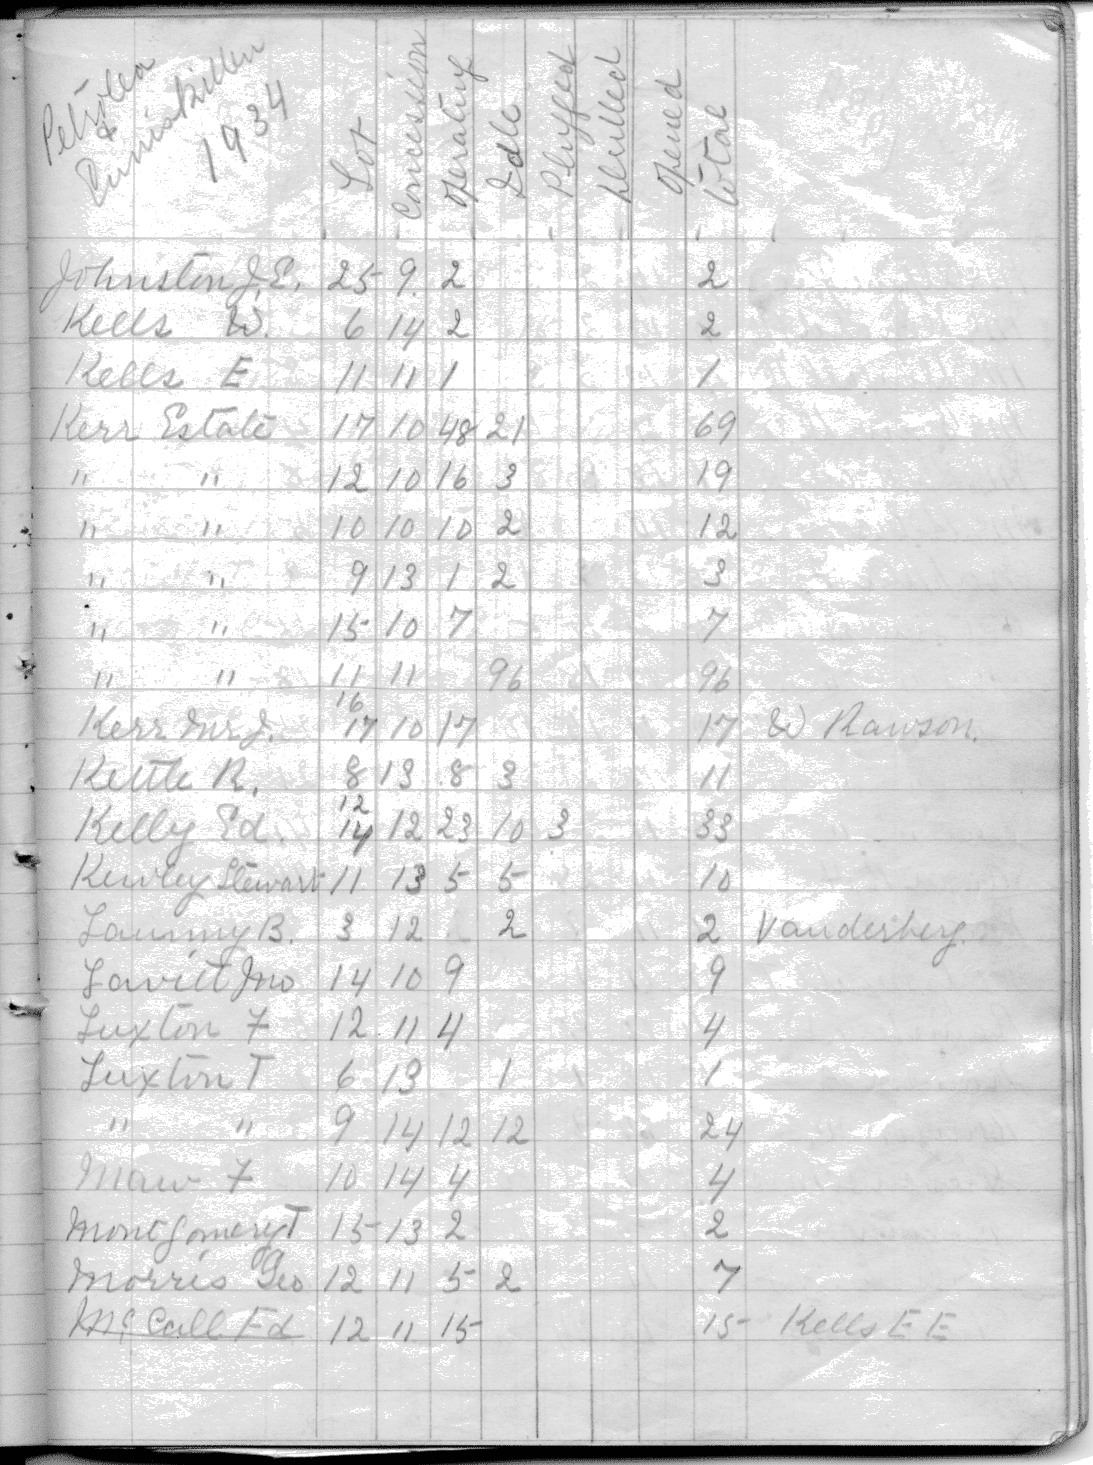 Petrolea
&
Enniskillen
1934
Lot Concession Operating Idle Plugged Drilled Opened Total
Johnston J. E. 25 9 2 2
Kells W. 6 14 2 2
Kells E 11 11 1 1
Kerr Estate 17 10 48 21 69
" " 12 10 16 3 19
" " 10 10 10 2 12
" " 9 13 1 2 3
" " 15 10 7 7
" " 11 11 96 96
16
Kerr Mr J. 17 10 17 17 W Rawson.
Kettle R. 8 13 8 3 11
12
Kelly Ed. 14 12 23 10 3 33
Kewley Stewart 11 13 5 5 10
B. 3 12 2 2 Vanderberg.
Lavitt Jno 14 10 9 9
Luxton F 12 11 4 4
Luxton T 6 13 1 1
" " 9 14 12 12 24
Maw F 10 14 4 4
Montgomery T 15 13 2 2
Morris Geo 12 11 5 2 7
McCall Ed 12 11 15 15 Kells E E